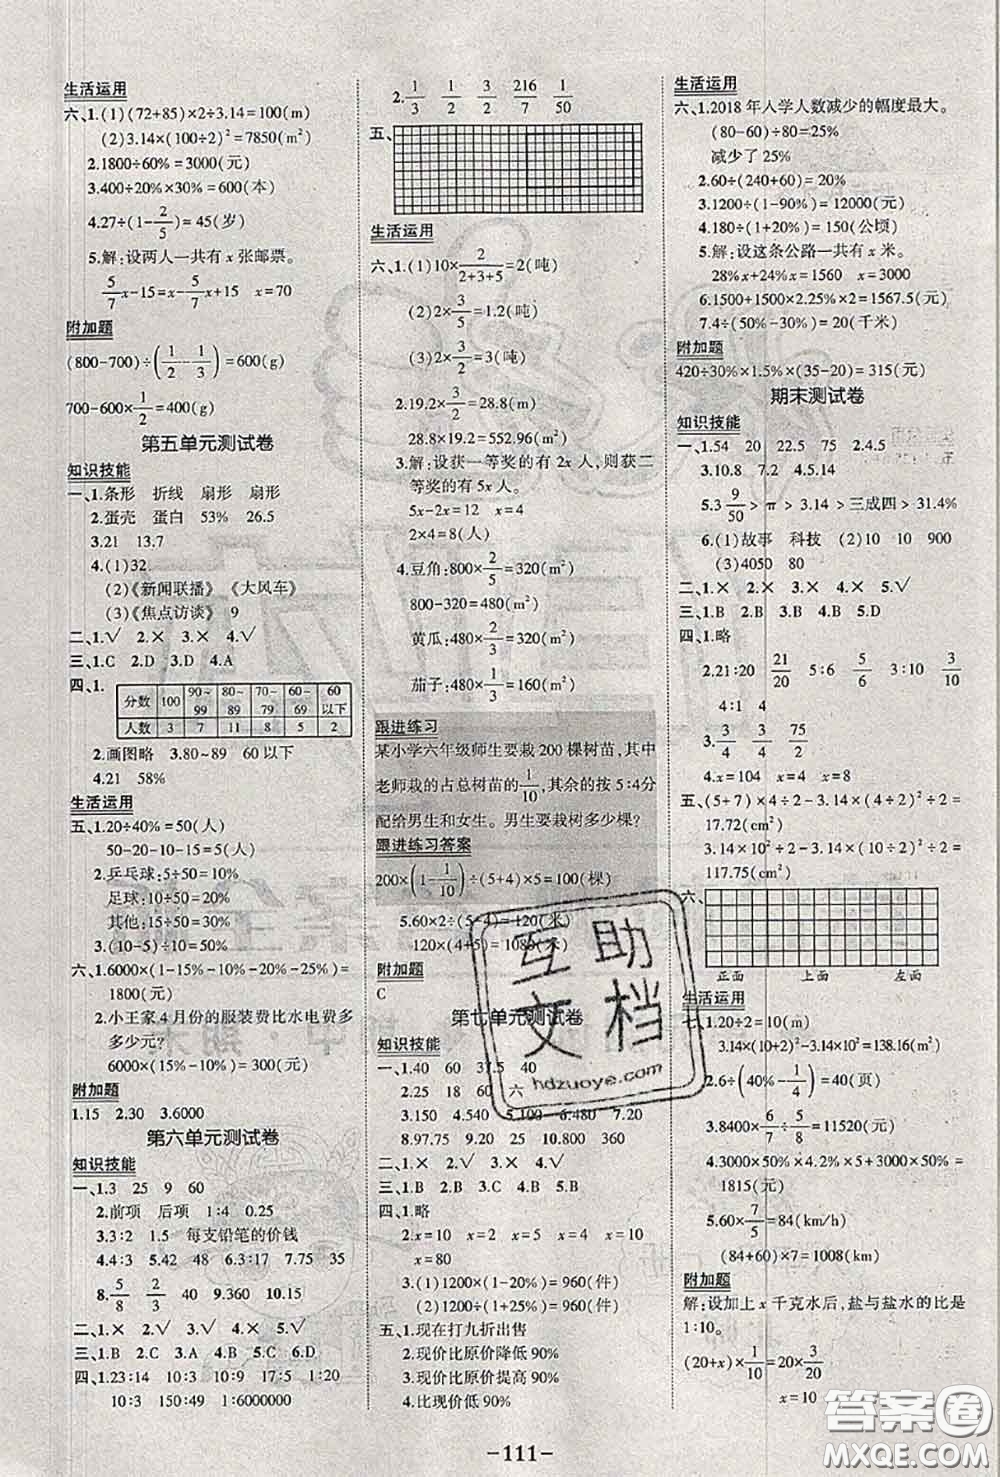 生活运用
六、1.(1)(72+85)×2÷3.14=100(m)
(2)3.14×(100÷2)²=7850(m²)
2.1800÷60%=3000(元)
3.400÷20%×30%=600(本)
4.27÷(1-2/5)=45(岁)
5.解:设两人一共有x张邮票。
5/7x-15=x-5/7x+15 x=70
附加题
(800-700)÷(1/2-1/3)=600(g)
700-600×1/2=400(g)
第五单元测试卷
知识技能
一、1.条形 折线 扇形 扇形
2.蛋壳 蛋白 53% 26.5
3.21 13.7
4.(1)32
(2)《新闻联播》 《大风车》
(3)《焦点访谈》 9
二、1.√ 2.× 3.× 4.√
三、1.C 2.D 3.D 4.A
四、1.
分数 100 90~99 80~89 70~79 60~69 60以下
人数 3 7 11 8 5 2
2.画图略 3.80~89 60以下
4.21 58%
生活运用
五、1.20÷40%=50(人)
50-20-10-15=5(人)
2.乒乓球:5÷50=10%
足球:10÷50=20%
其他:15÷50=30%
3.(10-5)÷10=50%
六、1.6000×(1-15%-10%-20%-25%)=
1800(元)
2.小王家4月份的服装费比水电费多
多少元?
6000×(15%-10%)=300(元)
附加题
1.15 2.30 3.6000
第六单元测试卷
知识技能
一、1.3 25 9 60
2.前项 后项 1:4 0.25
3.3:2 1.5 每支铅笔的价钱
4.4:3 5.42 48 6.24 7.75 35
8.5/8 2/3 40 9.360 10.15
二、1.× 2.√ 3.√ 4.× 5.√
三、1.B 2.A 3.A 4.B 5.B 6.D
四、1.23:14 10:3 9:17 1:20
10:3 150:49 1:6000000
2.1/3 1/2 3/2 216/7 1/50
五、
生活运用
六、1.(1)10×2/(2+3+5)=2(吨)
(2)2×3/5=1.2(吨)
(3)2×3/2=3(吨)
2.19.2×3/2=28.8(m)
28.8×19.2=552.96(m²)
3.解:设获一等奖的有2x人,则获二
等奖的有5x人。
5x-2x=12 x=4
2×4=8(人)
4.豆角:800×2/5=320(m²)
800-320=480(m²)
黄瓜:480×2/3=320(m²)
茄子:480×1/3=160(m²)
跟进练习
某小学六年级师生要栽200棵树苗,其中
老师栽的占总树苗的1/10,其余的按5:4分
配给男生和女生。男生要栽树多少棵?
跟进练习答案
200×(1-1/10)÷(5+4)×5=100(棵)
5.60×2÷(5-4)=120(米)
120×(4+5)=1080(米)
附加题
C
第七单元测试卷
知识技能
一、1.40 60 37.5 40
2.25 18 60 六
3.150 4.540 5.100 6.480 7.20
8.90% 9.97.02 10.25
二、1.× 2.√ 3.√ 4.× 5.×
三、1.B 2.B 3.B 4.B 5.B
四、1.略
2.x=10 x=2 x=10 x=2
x=80
3.(1)1200×(1-20%)=960(件)
(2)1200÷(1+25%)=960(件)
五、1.现在打九折出售
2.现价比原价降低90%
3.现价比原价提高90%
4.比现价低90%
六、1.2018年入学人数减少的幅度最大。
(80-60)÷80=25%
减少了25%
2.60÷(240+60)=20%
3.1200÷(1-90%)=12000(元)
4.180÷(1+20%)=150(公顷)
5.解:设这条公路一共有x米。
28%x+24%x=1560 x=3000
6.1500+1500×2.25%×2=1567.5(元)
7.4÷(50%-30%)=20(千米)
附加题
420÷30%×1.5%×(35-20)=315(元)
期末测试卷
知识技能
一、1.54 20 22.5 75 2.4.5
3.10.8 7.2 4.5.14
5.3 9/50>π>3.14>三成四>31.4%
6.(1)故事 科技 (2)10 10 900
(3)4050 80
二、1.× 2.× 3.× 4.× 5.√
三、1.B 2.B 3.B 4.B 5.D
四、1.略
2.21:20 21/20 5:6 5/6 3:10 3/10
4:1 4
3.3/4 3/4 4 27/2
4.x=104 x=4 x=8
五、(5+7)×4÷2-3.14×(4÷2)²÷2=
17.72(cm²)
3.14×10²÷2-3.14×(10÷2)²÷2=
117.75(cm²)
六、
正面 上面 左面
生活运用
七、1.20÷2=10(m)
互助
文档
hdzuoye.com
2.6÷(40%-1/4)=40(页)
3.8400×6/7÷5/8=11520(元)
1815(元)
5.60×7/5=84(km/h)
(84+60)×7=1008(km)
附加题
解:设加上x千克水后,盐与盐水的比是
1:10。
(20+x)×1/10=20×3/20
x=10
-111-
答案圈
MXQE.COM